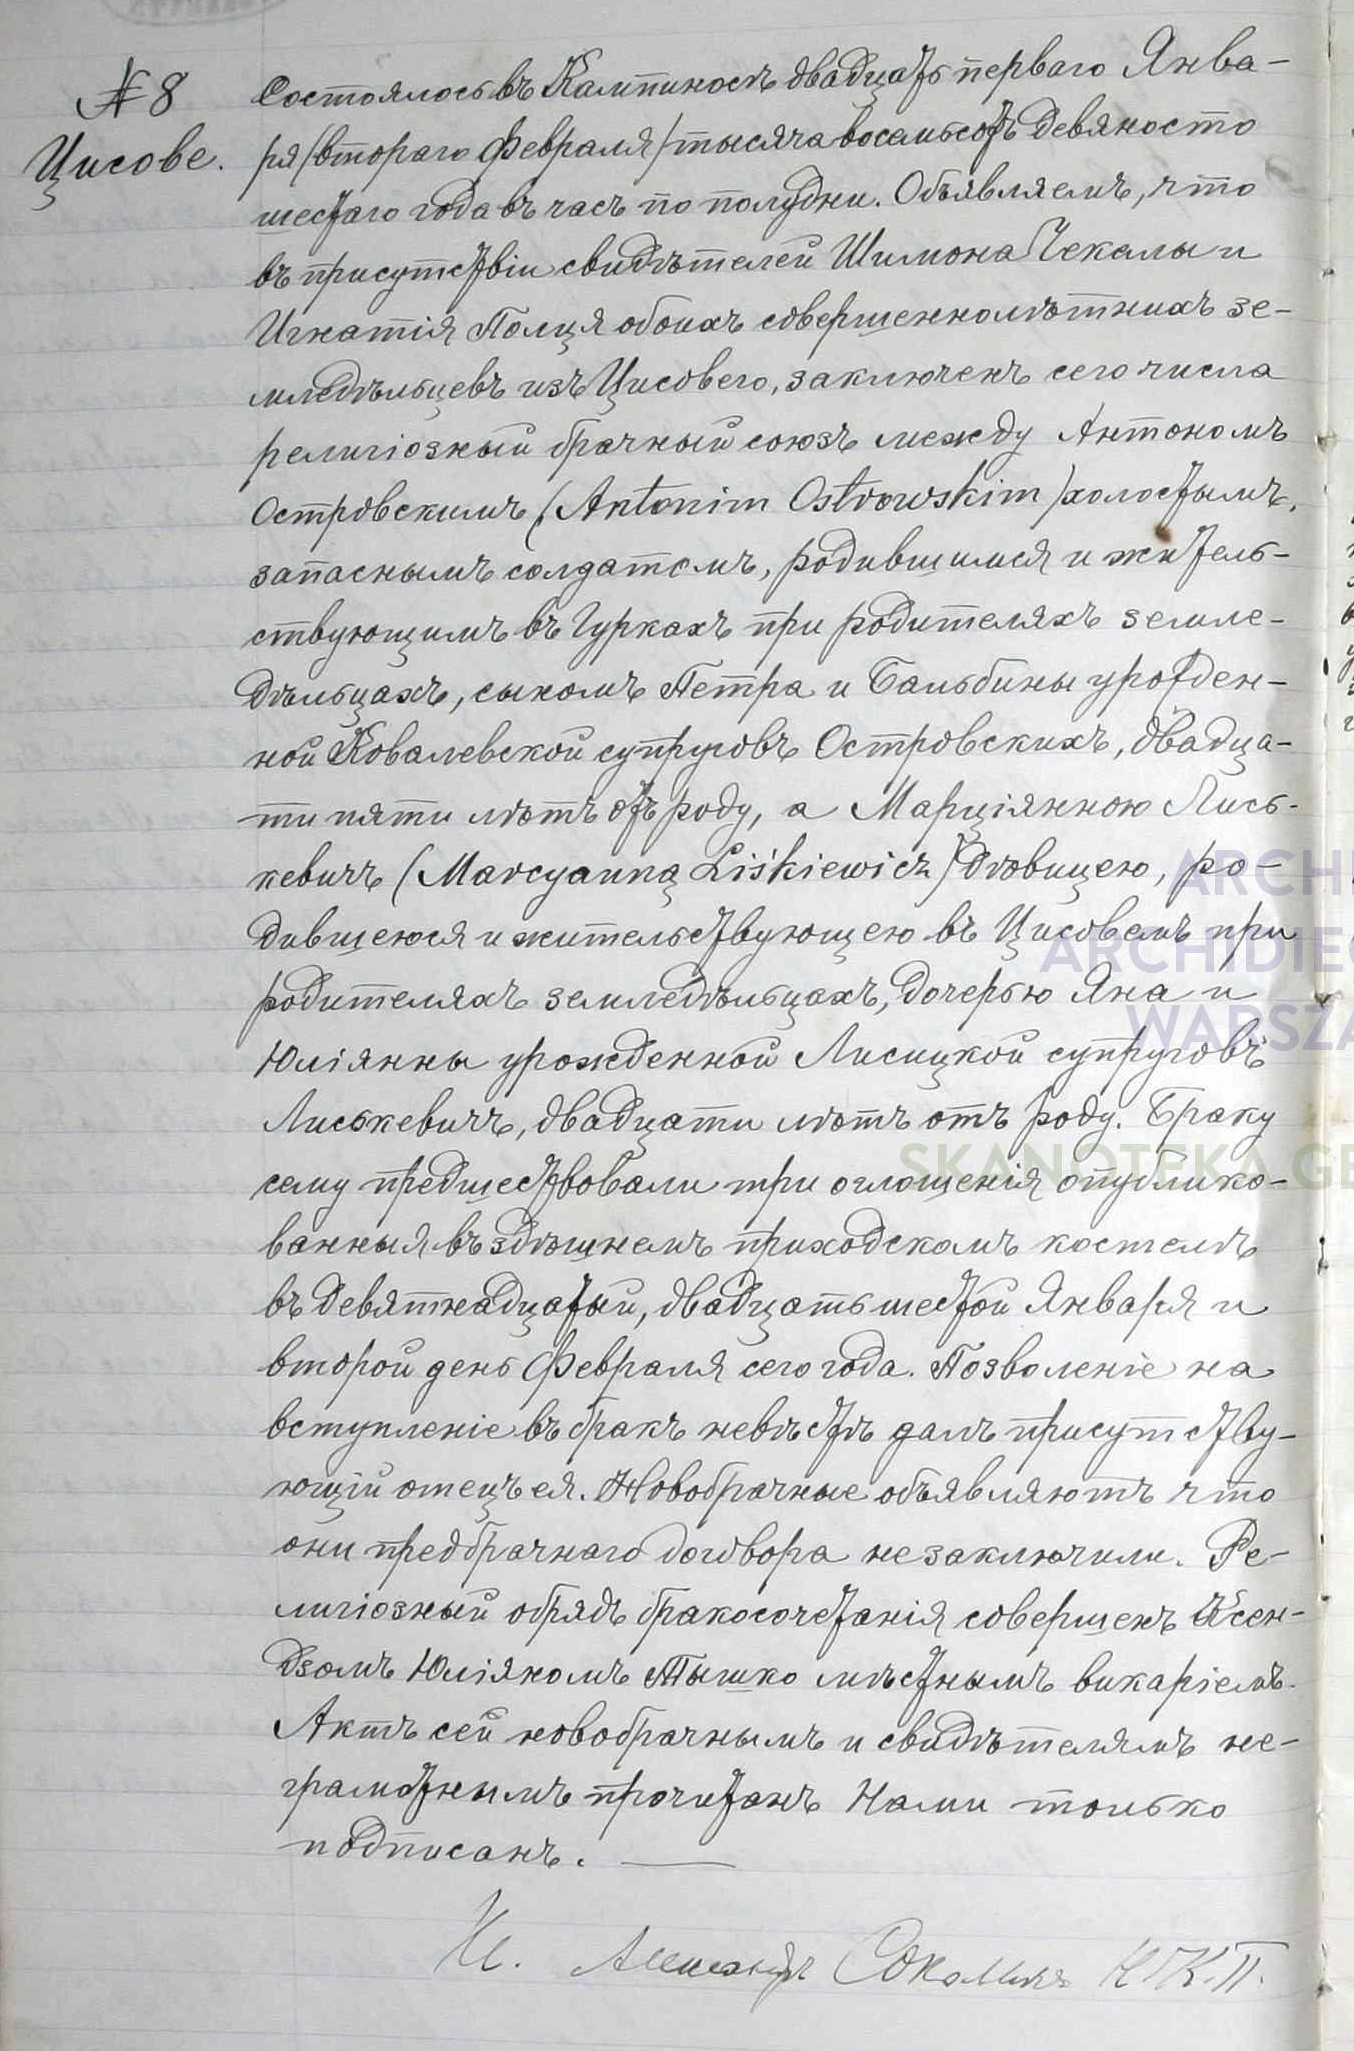 № 8
Цисове.
Состоялось въ Кампиносѣ двадцать перваго Янва-
ря /втораго Февраля/ тысяча восемьсотъ девяносто
шестаго года въ часъ по полудни. Объявляемъ, что
въ присутствіи свидѣтелей Шимона Чекалы и
Игнатія Полця обоихъ совершеннолѣтнихъ зе-
мледѣльцевъ изъ Цисовего, заключенъ сего числа
религіозный брачный союзъ между Антономъ
Островскимъ (Antonim Ostrowskim) холостымъ,
запаснымъ солдатомъ, родившимся и житель-
ствующимъ въ Гуркахъ при родителяхъ земле-
дѣльцахъ, сыномъ Петра и Бальбины урожден-
ной Ковалевской супруговъ Островскихъ, двадца-
ти пяти лѣтъ отъ роду, а Марціянною Лись-
кевичъ (Marcyanną Liśkiewicz) дѣвицею, ро-
дившеюся и жительствующею въ Цисовемъ при
родителяхъ земледѣльцахъ, дочерью Яна и
Юліянны урожденной Лисицкой супруговъ
Лиськевичъ, двадцати лѣтъ отъ роду. Браку
сему предшествовали три оглошенія опублико-
ванныя въ здѣшнемъ приходскомъ костелѣ
въ девятнадцатый, двадцать шестой Января и
второй день Февраля сего года. Позволеніе на
вступленіе въ бракъ невѣстѣ далъ присутству-
ющій отецъ ея. Новобрачные объявляютъ что
они предбрачнаго договора не заключили. Ре-
лигіозный обрядъ бракосочетанія совершенъ Ксен-
дзомъ Юліяномъ Тышко мѣстнымъ викаріемъ.
Актъ сей новобрачнымъ и свидѣтелямъ не-
грамотнымъ прочитанъ Нами только
подписанъ.
ARCHI
ARCHIDIEC
WARSZA
SKANOTEKA GE